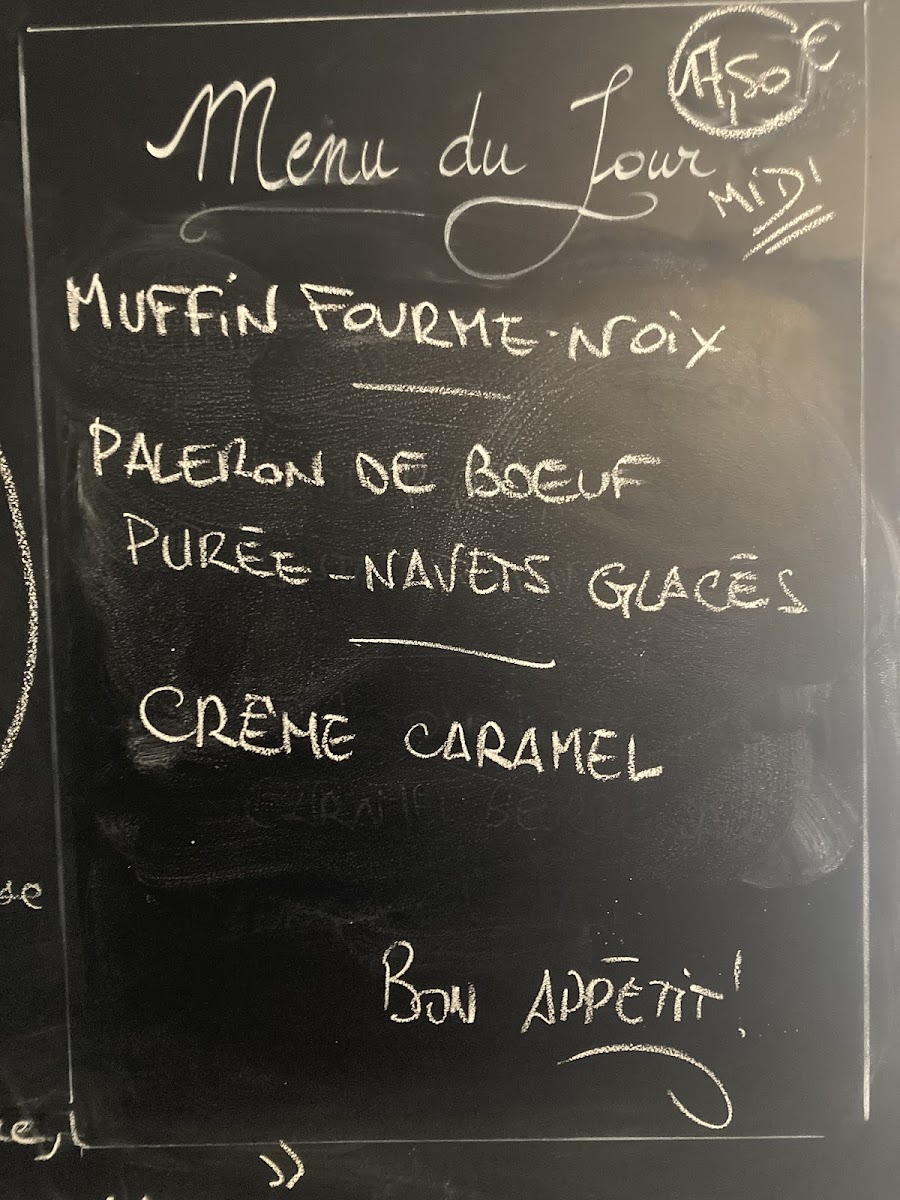 17,50 €
Menu du Jour
MIDI
MUFFIN FOURME-NOIX
PALERON DE BOEUF
PURÉE-NAVETS GLACÉS
CRÈME CARAMEL
BON APPÉTIT!